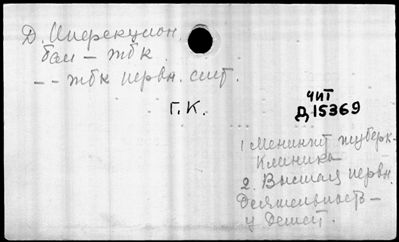 Д. Инфекцион.
бол — тбк
-- тбк нервн. сист.
Г.К.
чит
Д 15369
1 Менингит туберк-
клиника
2. Высшая нервн.
деятельность —
у детей.